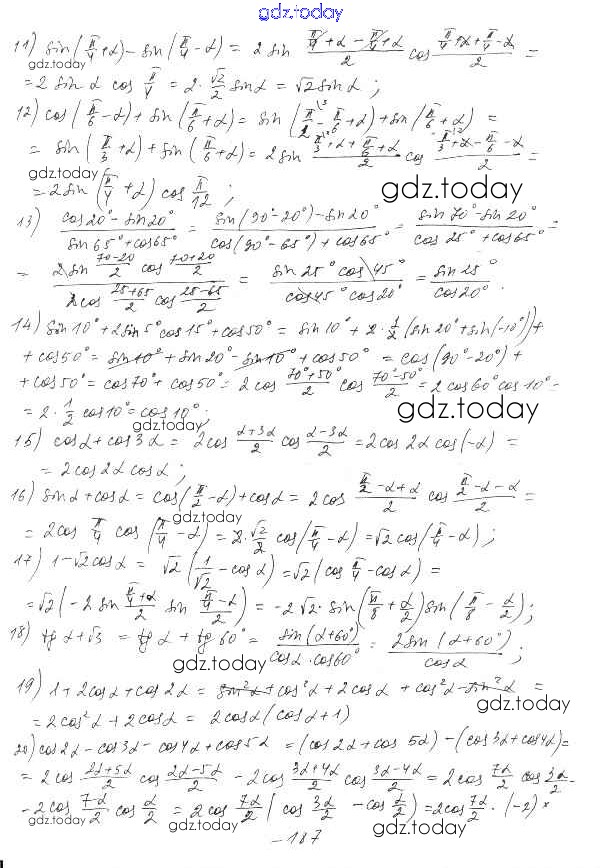 gdz.today
11) sin(π/4+α) - sin(π/4-α) = 2 sin (π/4+α-π/4+α)/2 cos (π/4+α+π/4-α)/2 =
gdz.today
= 2 sin α cos π/4 = 2·√2/2 sinα = √2 sinα ;
12) cos(π/6-α) + sin(π/6+α) = sin(π/2-π/6+α) + sin(π/6+α) =
= sin(π/3+α) + sin(π/6+α) = 2 sin (π/3+α+π/6+α)/2 cos (π/3+α-π/6-α)/2 =
gdz.today
= 2 sin(π/4+α) cos π/12 ;
gdz.today
13) (cos20°-sin20°)/(sin65°+cos65°) = (sin(90°-20°)-sin20°)/(cos(90°-65°)+cos65°) = (sin70°-sin20°)/(cos25°+cos65°) =
= (2 sin (70-20)/2 cos (70+20)/2)/(2 cos (25+65)/2 cos (25-65)/2) = (sin25° cos45°)/(cos45° cos20°) = sin25°/cos20° .
gdz.today
14) sin10°+2sin5°cos15°+cos50° = sin10°+2·1/2(sin20°+sin(-10°))+
+cos50° = sin10°+sin20°-sin10°+cos50° = cos(90°-20°)+
+cos50° = cos70°+cos50° = 2cos (70°+50°)/2 cos (70°-50°)/2 = 2cos60°cos10° =
= 2·1/2 cos10° = cos10° ;
gdz.today
gdz.today
15) cosα+cos3α = 2cos (α+3α)/2 cos (α-3α)/2 = 2cos2α cos(-α) =
= 2cos2α cosα ;
16) sinα+cosα = cos(π/2-α)+cosα = 2cos (π/2-α+α)/2 cos (π/2-α-α)/2 =
gdz.today
= 2cos π/4 cos(π/4-α) = 2·√2/2 cos(π/4-α) = √2 cos(π/4-α) ;
17) 1-√2cosα = √2(1/√2-cosα) = √2(cos π/4-cosα) =
= √2(-2 sin (π/4+α)/2 sin (π/4-α)/2) = -2√2·sin(π/8+α/2)sin(π/8-α/2) ;
18) tg α+√3 = tg α+tg 60° = sin(α+60°)/(cosα·cos60°) = 2sin(α+60°)/cosα ;
gdz.today
19) 1+2cosα+cos2α = sin²α+cos²α+2cosα+cos²α-sin²α =
gdz.today
= 2cos²α+2cosα = 2cosα(cosα+1)
20) cos2α-cos3α-cos4α+cos5α = (cos2α+cos5α)-(cos3α+cos4α) =
= 2cos (2α+5α)/2 cos (2α-5α)/2 - 2cos (3α+4α)/2 cos (3α-4α)/2 = 2cos 7α/2 cos 3α/2 -
- 2cos 7α/2 cos α/2 = 2cos 7α/2 (cos 3α/2 - cos α/2) = 2cos 7α/2 · (-2) ×
gdz.today
gdz.today
- 187